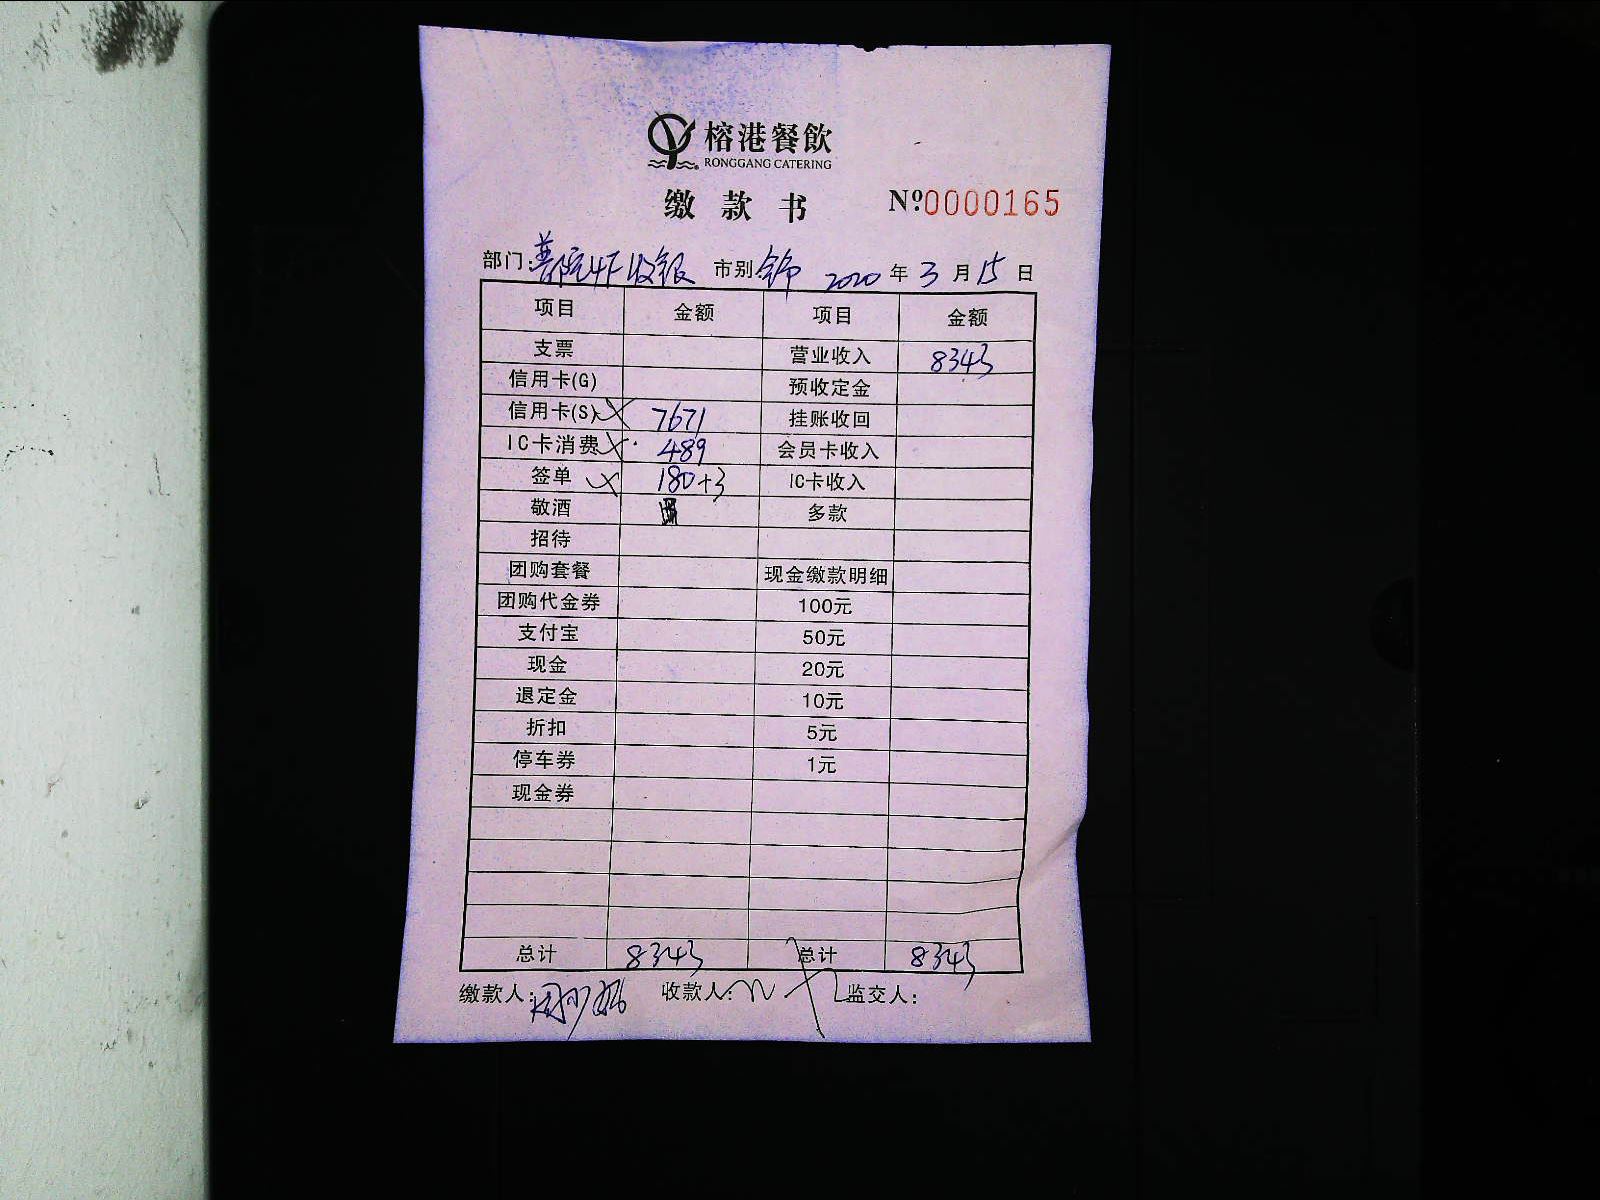 榕港餐飲
RONGGANG CATERING
缴款书 Nº0000165
部门: 收银 市别: 2020 年 3 月 15 日
项目 金额 项目 金额
支票 营业收入 8343
信用卡(G) 预收定金
信用卡(S) 7671 挂账收回
IC卡消费 489 会员卡收入
签单 180+3 IC卡收入
敬酒 多款
招待
团购套餐 现金缴款明细
团购代金券 100元
支付宝 50元
现金 20元
退定金 10元
折扣 5元
停车券 1元
现金券
总计 8343 总计 8343
缴款人: 收款人: 监交人: